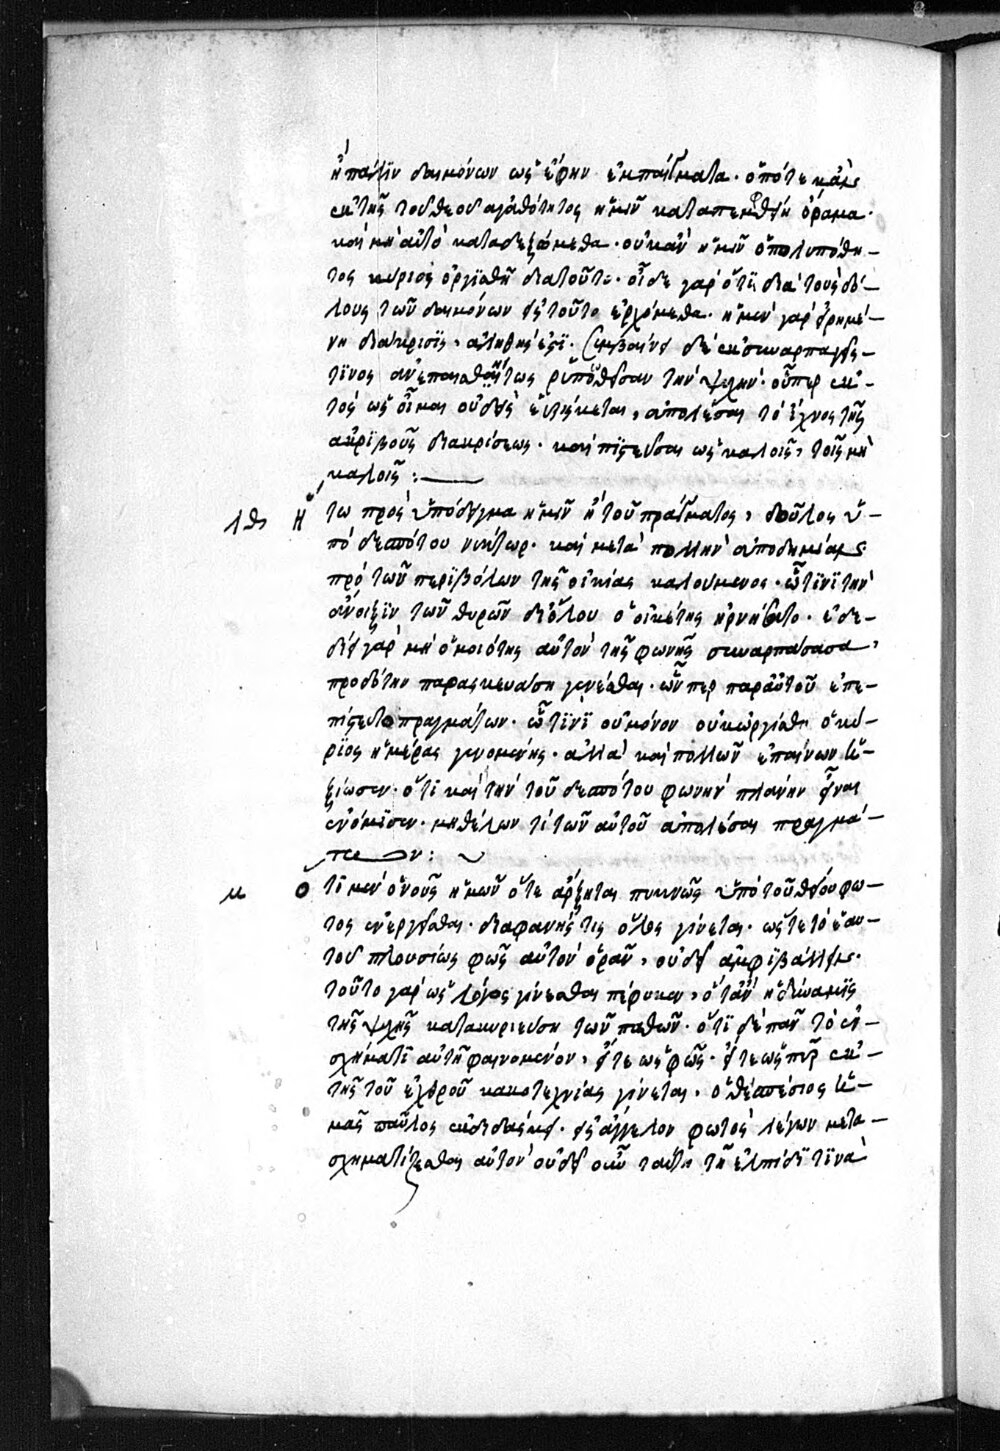 ἠπάτην δαιμόνων ὡς ἔφην ἐμπαίγματα. ὁπότε κἂν
ἐκ τῆς τοῦ θεοῦ ἀγαθότητος ἡμῖν καταπεμφθῆ ὅραμα.
καὶ μὴ αὐτὸ καταδεξώμεθα. οὐκ ἂν ἡμῖν ὁ πολυπόθη-
τος κύριος ὀργισθῆ διατοῦτο. οἶδε γὰρ ὅτι διὰ τοὺς δό-
λους τῶν δαιμόνων εἰς τοῦτο ἐρχόμεθα. ἡ μὲν γὰρ εἰρημέ-
νη διάκρισις, ἀληθής ἐστι. συμβαίνει δὲ ἐκ συναρπαγῆς
τινος ἀνεπαισθήτως ῥυπωθεῖσαν τὴν ψυχὴν. οὗπερ ἐκ-
τὸς ὡς οἶμαι οὐδεὶς εὑρίσκεται, ἀπολέσαι τὸ ἴχνος τῆς
ἀκριβοῦς διακρίσεως. καὶ πιστεῦσαι ὡς καλοῖς, τοῖς μὴ
καλοῖς:
λθ Ἤ τω πρὸς ὑπόδειγμα ἡμῖν ἡ τοῦ πράγματος, δοῦλος ὑ-
πὸ δεσπότου νύκτωρ. καὶ μετὰ πολλὴν ἀποδημίας
πρὸ τῶν περιβόλων τῆς οἰκίας καλούμενος. ὧτινι τὴν
ἄνοιξιν τῶν θυρῶν διόλου ὁ οἰκέτης ἠρνήσατο. ἐδε-
δίει γὰρ μὴ ὁμοιότης αὐτὸν τῆς φωνῆς συναρπάσασα,
προδότην παρασκευάση γενέσθαι. ὧνπερ παρ αὐτοῦ ἐπε-
πίστευτο πραγμάτων. ὧτινι οὐ μόνον οὐκ ὠργίσθη ὁ κύ-
ριος ἡμέρας γενομένης. ἀλλὰ καὶ πολλῶν ἐπαίνων ἠ-
ξίωσεν. ὅτι καὶ τὴν τοῦ δεσπότου φωνὴν πλάνην εἶναι
ἐνόμισεν. μὴ θέλων τι τῶν αὐτοῦ ἀπολέσαι πραγμά-
των:
μ Ὅ τι μὲν ὁ νοῦς ἡμῶν ὅτε ἄρξηται πυκνῶς ὑπὸ τοῦ θείου φω-
τὸς ἐνεργεῖσθαι. διαφανής τις ὅλος γίνεται. ὥστε τὸ ἑαυ-
τοῦ πλουσίως φῶς αὐτὸν ὁρᾶν, οὐδεὶς ἀμφιβάλλει.
τοῦτο γὰρ ὡς λόγος γίνεσθαι πέφυκεν, ὅταν ἡ δύναμις
τῆς ψυχῆς κατακυριεύση τῶν παθῶν. ὅτι δὲ πᾶν τὸ ἐν
σχήματι αὐτῆ φαινόμενον, εἴτε ὡς φῶς. εἴτε ὡς πῦρ ἐκ
τῆς τοῦ ἐχθροῦ κακοτεχνίας γίνεται. ὁ θεσπέσιος ἡ-
μᾶς παῦλος ἐκδιδάσκει. εἰς ἄγγελον φωτὸς λέγων μετα-
σχηματίζεσθαι αὐτὸν οὐδεὶς οὖν ταύτη τῆ ἐλπίδι τινὰ